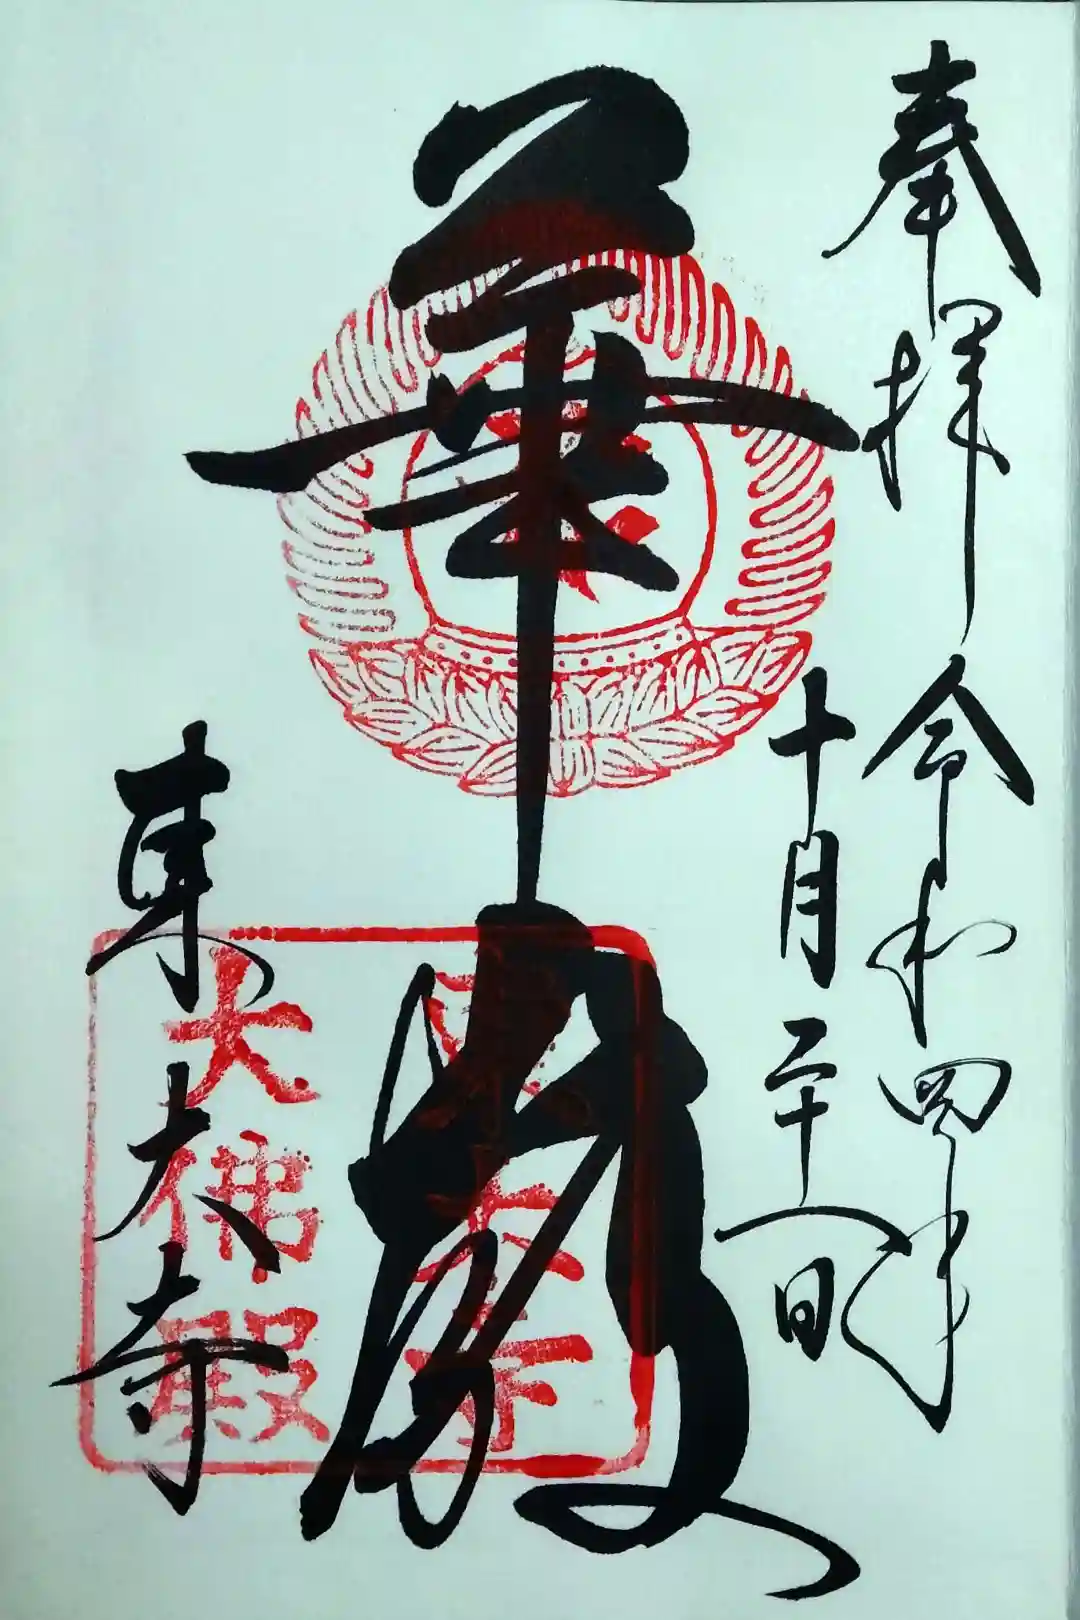 奉拝 令和四年
十月二十一日
華厳
東大寺
東大寺
大佛殿